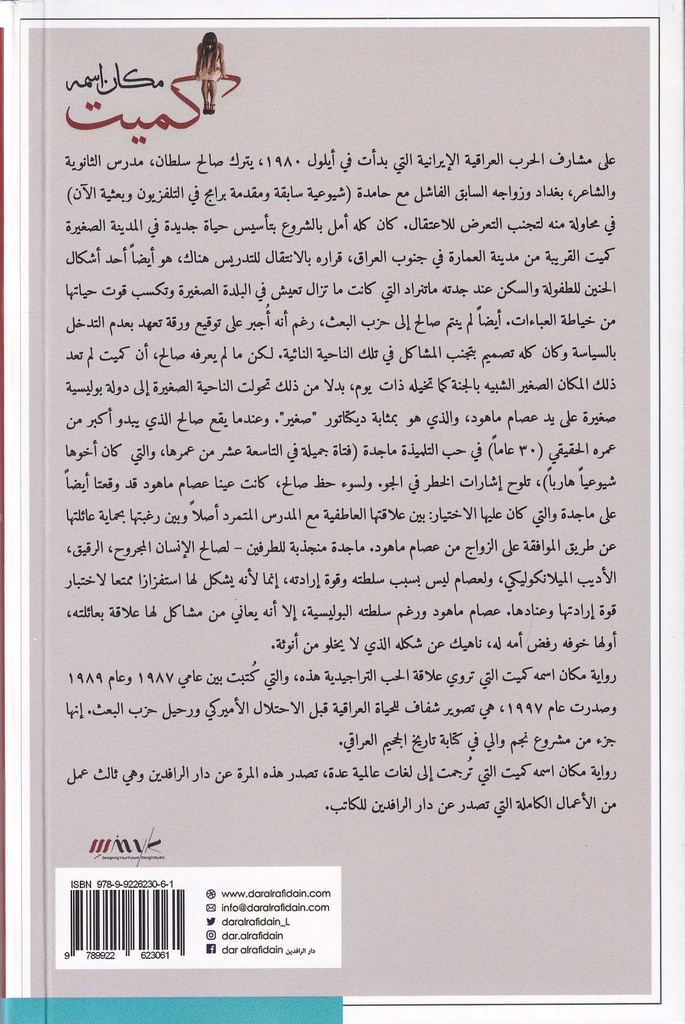 مكان اسمه
كميت
على مشارف الحرب العراقية الإيرانية التي بدأت في أيلول ١٩٨٠، يترك صالح سلطان، مدرس الثانوية
والشاعر، بغداد وزواجه السابق الفاشل مع حامدة (شيوعية سابقة ومقدمة برامج في التلفزيون وبعثية الآن)
في محاولة منه لتجنب التعرض للاعتقال. كان كله أمل بالشروع بتأسيس حياة جديدة في المدينة الصغيرة
كميت القريبة من مدينة العمارة في جنوب العراق، قراره بالانتقال للتدريس هناك، هو أيضاً أحد أشكال
الحنين للطفولة والسكن عند جدته ماتفراد التي كانت ما تزال تعيش في البلدة الصغيرة وتكسب قوت حياتها
من خياطة العباءات. أيضاً لم ينتم صالح إلى حزب البعث، رغم أنه أُجبر على توقيع ورقة تعهد بعدم التدخل
بالسياسة وكان كله تصميم بتجنب المشاكل في تلك الناحية النائية. لكن ما لم يعرفه صالح، أن كميت لم تعد
ذلك المكان الصغير الشبيه بالجنة كما تخيله ذات يوم، بدلا من ذلك تحولت الناحية الصغيرة إلى دولة بوليسية
صغيرة على يد عصام ماهود، والذي هو بمثابة ديكتاتور "صغير". وعندما يقع صالح الذي يبدو أكبر من
عمره الحقيقي (٣٠ عاماً) في حب التلميذة ماجدة (فتاة جميلة في التاسعة عشر من عمرها، والتي كان أخوها
شيوعياً هارباً)، تلوح إشارات الخطر في الجو. ولسوء حظ صالح، كانت عينا عصام ماهود قد وقعتا أيضاً
على ماجدة والتي كان عليها الاختيار: بين علاقتها العاطفية مع المدرس المتمرد أصلاً وبين رغبتها بحماية عائلتها
عن طريق الموافقة على الزواج من عصام ماهود. ماجدة منجذبة للطرفين – لصالح الإنسان المجروح، الرقيق،
الأديب الميلانكوليكي، ولعصام ليس بسبب سلطته وقوة إرادته، إنما لأنه يشكل لها استفزازا ممتعا لاختبار
قوة إرادتها وعنادها. عصام ماهود ورغم سلطته البوليسية، إلا أنه يعاني من مشاكل لها علاقة بعائلته،
أولها خوفه رفض أمه له، ناهيك عن شكله الذي لا يخلو من أنوثة.
رواية مكان اسمه كميت التي تروي علاقة الحب التراجيدية هذه، والتي كُتبت بين عامي ١٩٨٧ وعام ١٩٨٩
وصدرت عام ١٩٩٧، هي تصوير شفاف للحياة العراقية قبل الاحتلال الأميركي ورحيل حزب البعث. إنها
جزء من مشروع نجم والي في كتابة تاريخ الجحيم العراقي.
رواية مكان اسمه كميت التي تُرجمت إلى لغات عالمية عدة، تصدر هذه المرة عن دار الرافدين وهي ثالث عمل
من الأعمال الكاملة التي تصدر عن دار الرافدين للكاتب.
ISBN 978-9-9226230-6-1
9 789922 623061
www.daralrafidain.com
info@daralrafidain.com
daralrafidain_L
dar.alrafidain
dar alrafidain دار الرافدين